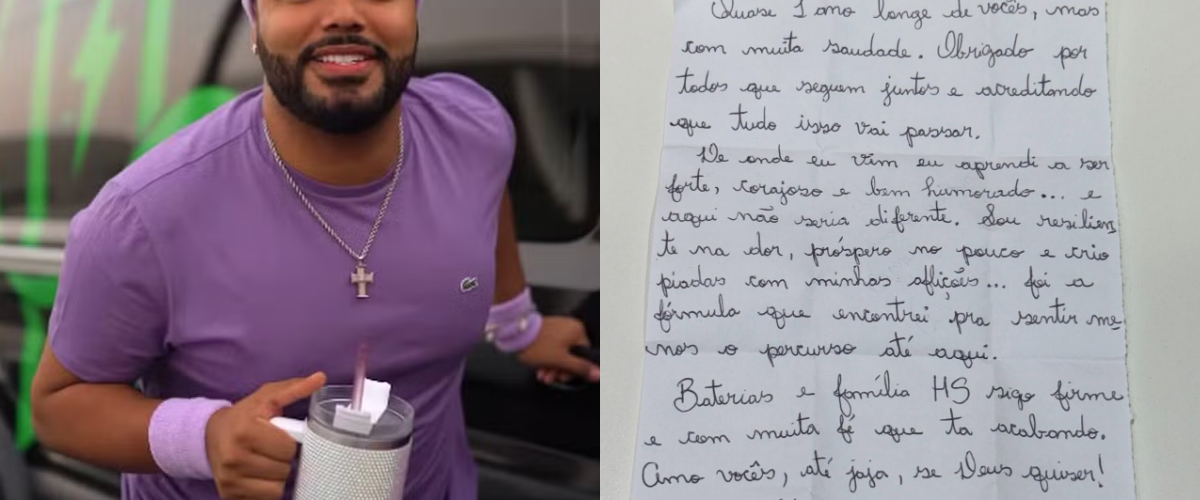 Quase 1 ano longe de vocês, mas
com muita saudade. Obrigado por
todos que seguem juntos e acreditando
que tudo isso vai passar.
De onde eu vim eu aprendi a ser
forte, corajoso e bem humorado... e
aqui não seria diferente. Sou resilien
te na dor, próspero no pouco e crio
piadas com minhas aflições... foi a
fórmula que encontrei pra sentir me
nos o percurso até aqui.
Baterias e família HS sigo firme
e com muita fé que ta acabando.
Amo vocês, até jaja, se Deus quiser!